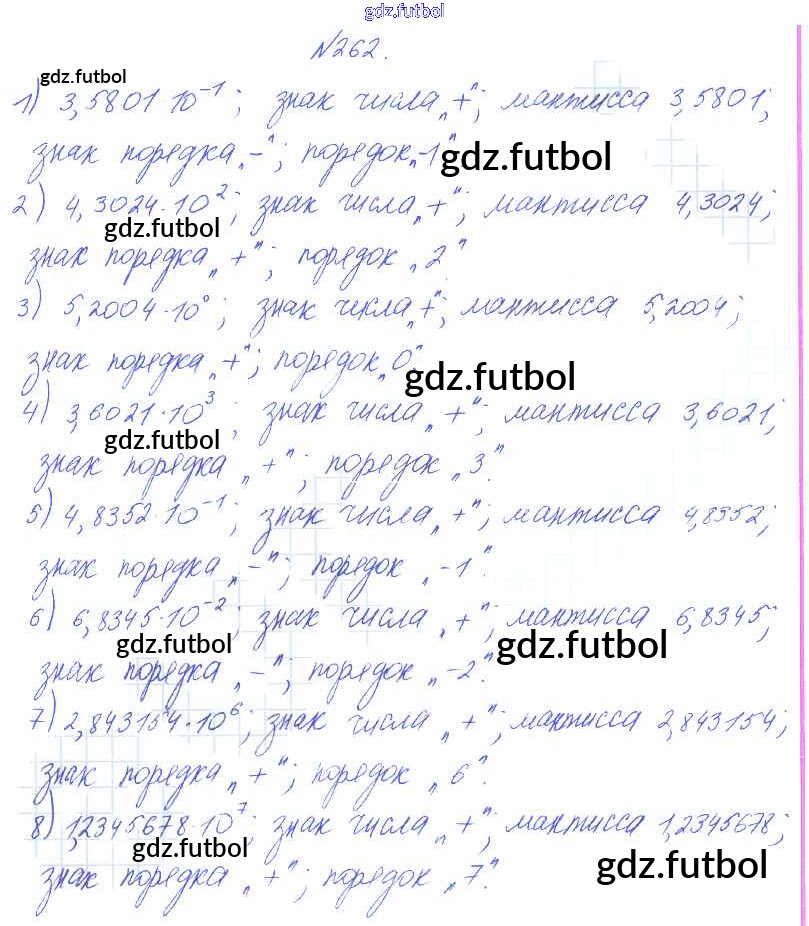 gdz.futbol
№262.
gdz.futbol
1) 3,5801·10⁻¹; знак числа „+"; мантисса 3,5801;
знак порядка „-"; порядок „-1"
gdz.futbol
2) 4,3024·10²; знак числа „+"; мантисса 4,3024;
gdz.futbol
знак порядка „+"; порядок „2"
3) 5,2004·10⁰; знак чикла „+"; мантисса 5,2004;
знак порядка „+"; порядок „0".
gdz.futbol
4) 3,6021·10³; знак числа „+"; мантисса 3,6021;
gdz.futbol
знак порядка „+"; порядок „3".
5) 4,8352·10⁻¹; знак числа „+"; мантисса 4,8352;
знак порядка „-"; порядок „-1".
6) 6,8345·10⁻²; знак числа „+"; мантисса 6,8345;
gdz.futbol
gdz.futbol
знак порядка „-"; порядок „-2".
7) 2,843154·10⁶; знак числа „+"; мантисса 2,843154;
знак порядка „+"; порядок „6".
8) 1,2345678·10⁷; знак числа „+"; мантисса 1,2345678;
gdz.futbol
gdz.futbol
знак порядка „+"; порядок „7".